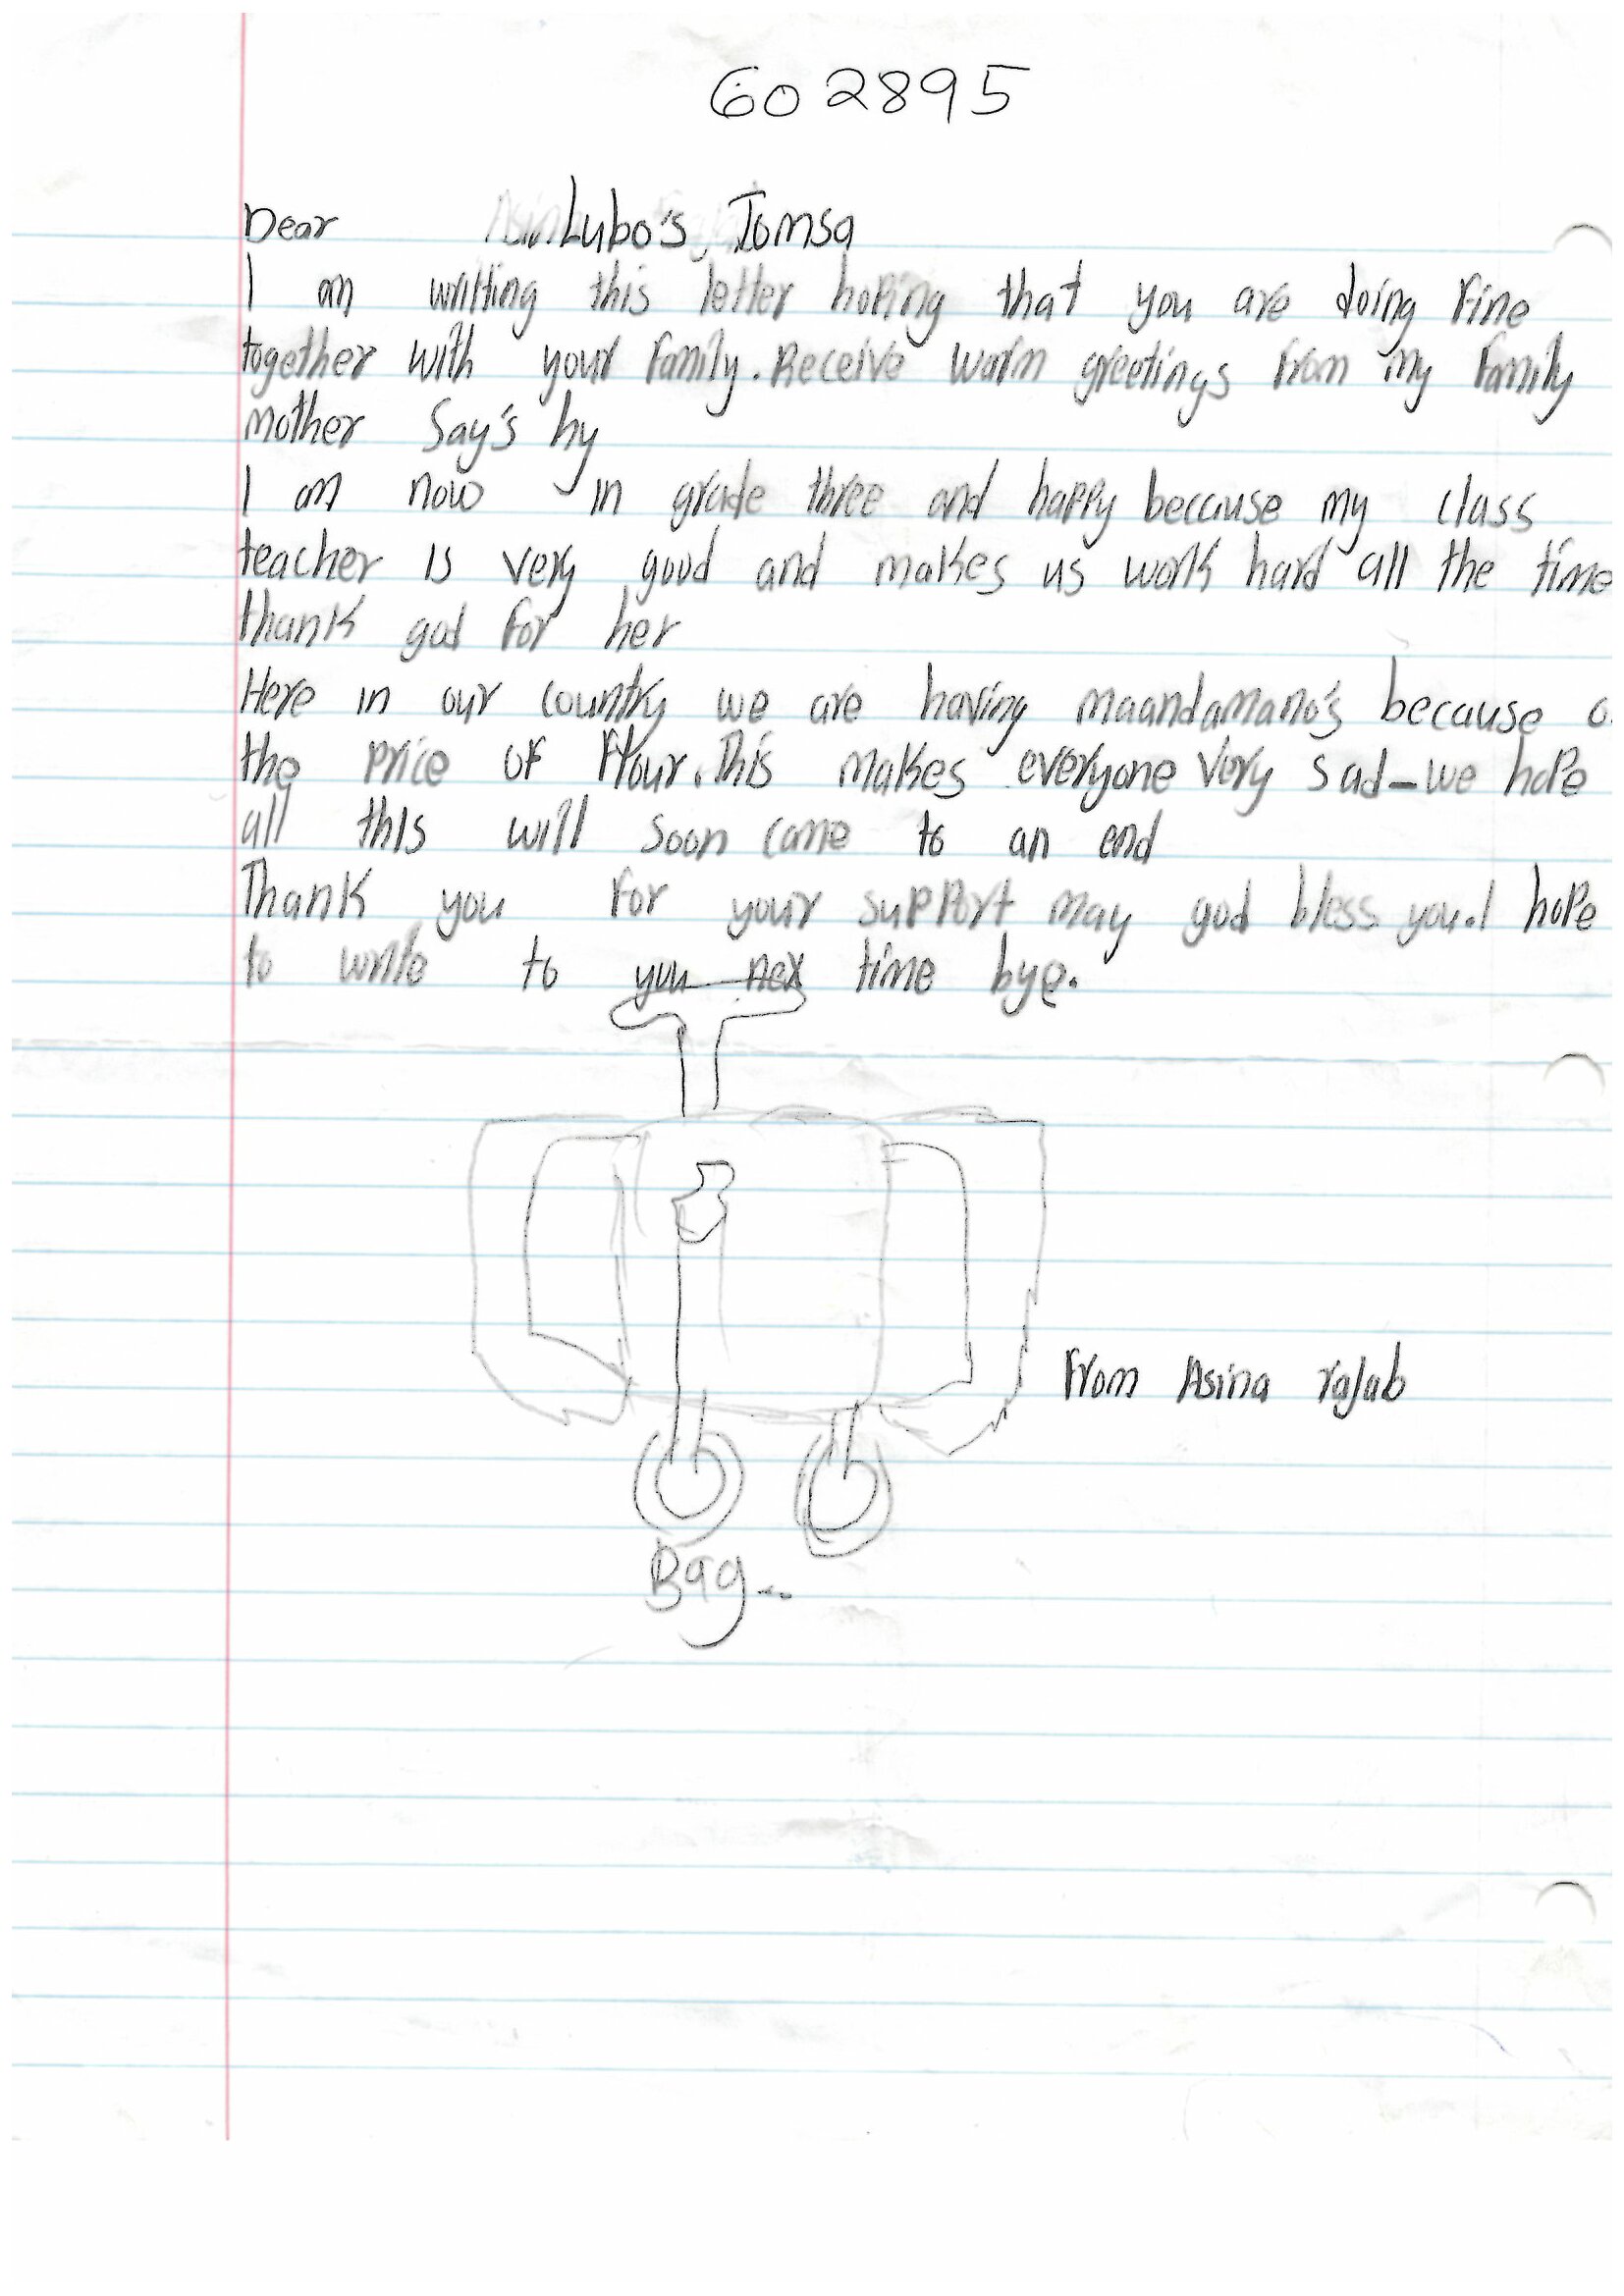 602895
Dear Lubo's Tomsa
I am writting this letter hoping that you are doing fine
together with your family. Receive warm greetings from my family
mother Say's hy
I am now in grade three and happy because my class
teacher is very good and makes us work hard all the time
thank god for her
Here in our country we are having maandamano's because
the price of flour. This makes everyone very sad - we hope
all this will soon come to an end
Thank you for your support may god bless you. I hope
to write to you nex time bye.
From Asina rajab
Bag..